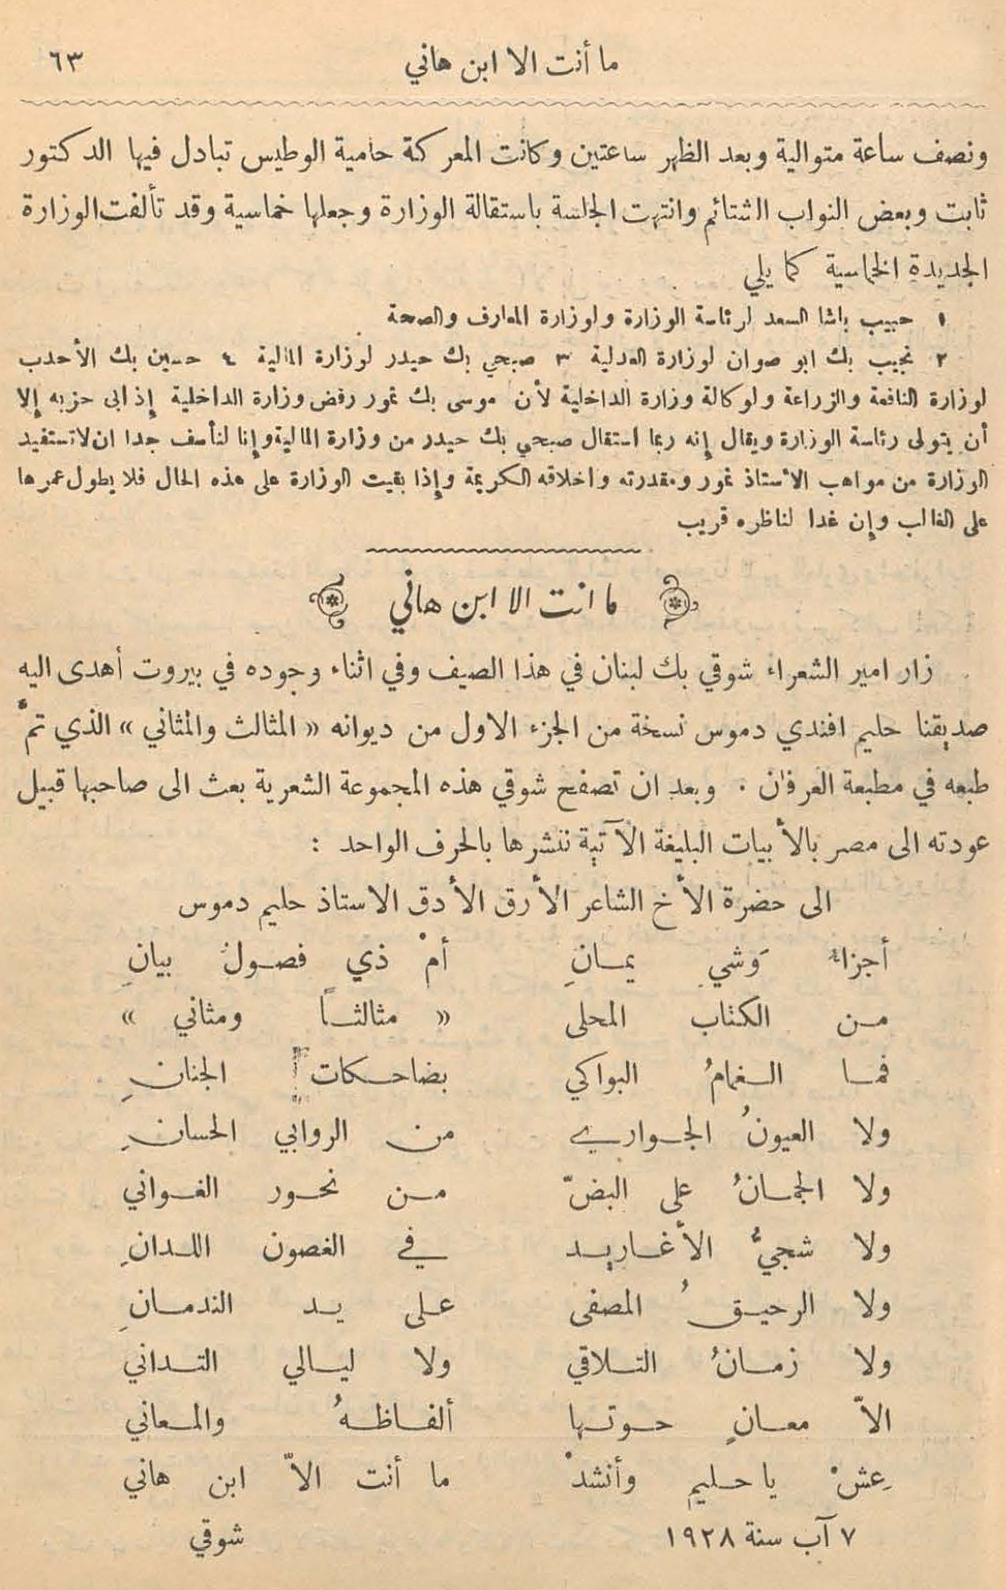 ما أنت الا ابن هاني ٦٣
ونصف ساعة متوالية وبعد الظهر ساعتين وكانت المعركة حامية الوطيس تبادل فيها الدكتور
ثابت وبعض النواب الشتائم وانتهت الجلسة باستقالة الوزارة وجعلها خماسية وقد تألفت الوزارة
الجديدة الخماسية كما يلي
١ حبيب باشا السعد لرئاسة الوزارة ولوزارة المعارف والصحة
٢ نجيب بك ابو صوان لوزارة العدلية ٣ صبحي بك حيدر لوزارة المالية ٤ حسين بك الأحدب
لوزارة النافعة والزراعة ولوكالة وزارة الداخلية لأن موسى بك نمور رفض وزارة الداخلية إذ ابى حزبه إلا
أن يتولى رئاسة الوزارة ويقال إنه ربما استقال صبحي بك حيدر من وزارة المالية وإنا لنأسف جدا ان لا تستفيد
الوزارة من مواهب الأستاذ نمور ومقدرته واخلاقه الكريمة وإذا بقيت الوزارة على هذه الحال فلا يطول عمرها
على الغالب وإن غدا لناظره قريب
ما انت الا ابن هاني
زار امير الشعراء شوقي بك لبنان في هذا الصيف وفي اثناء وجوده في بيروت أهدى اليه
صديقنا حليم افندي دموس نسخة من الجزء الاول من ديوانه « المثالث والمثاني » الذي تمَّ
طبعه في مطبعة العرفان . وبعد ان تصفح شوقي هذه المجموعة الشعرية بعث الى صاحبها قبيل
عودته الى مصر بالأبيات البليغة الآتية ننشرها بالحرف الواحد :
الى حضرة الأخ الشاعر الأرق الأدق الاستاذ حليم دموس
أجزاءُ وَشيِ يمـانِ أمْ ذي فصـولُ بيانِ
من الكتاب المحلى « مثالثـاً ومثاني »
فمـا الـغمامُ البواكي بضاحـكات الجنانِ
ولا العيونُ الجـواري من الروابي الحسانِ
ولا الجمـانُ على البضّ مـن نحـور الغـواني
ولا شجيُّ الأغـاريـد في الغصون اللـدانِ
ولا الرحيـقُ المصفى عـلى يـد الندمـانِ
ولا زمـانُ التـلاقي ولا ليـالي التـداني
الاّ معـانٍ حـوتـها ألفـاظـهُ والمـعاني
عِشْ يا حـليم وأنشدْ ما أنت الاّ ابن هاني
٧ آب سنة ١٩٢٨ شوقي